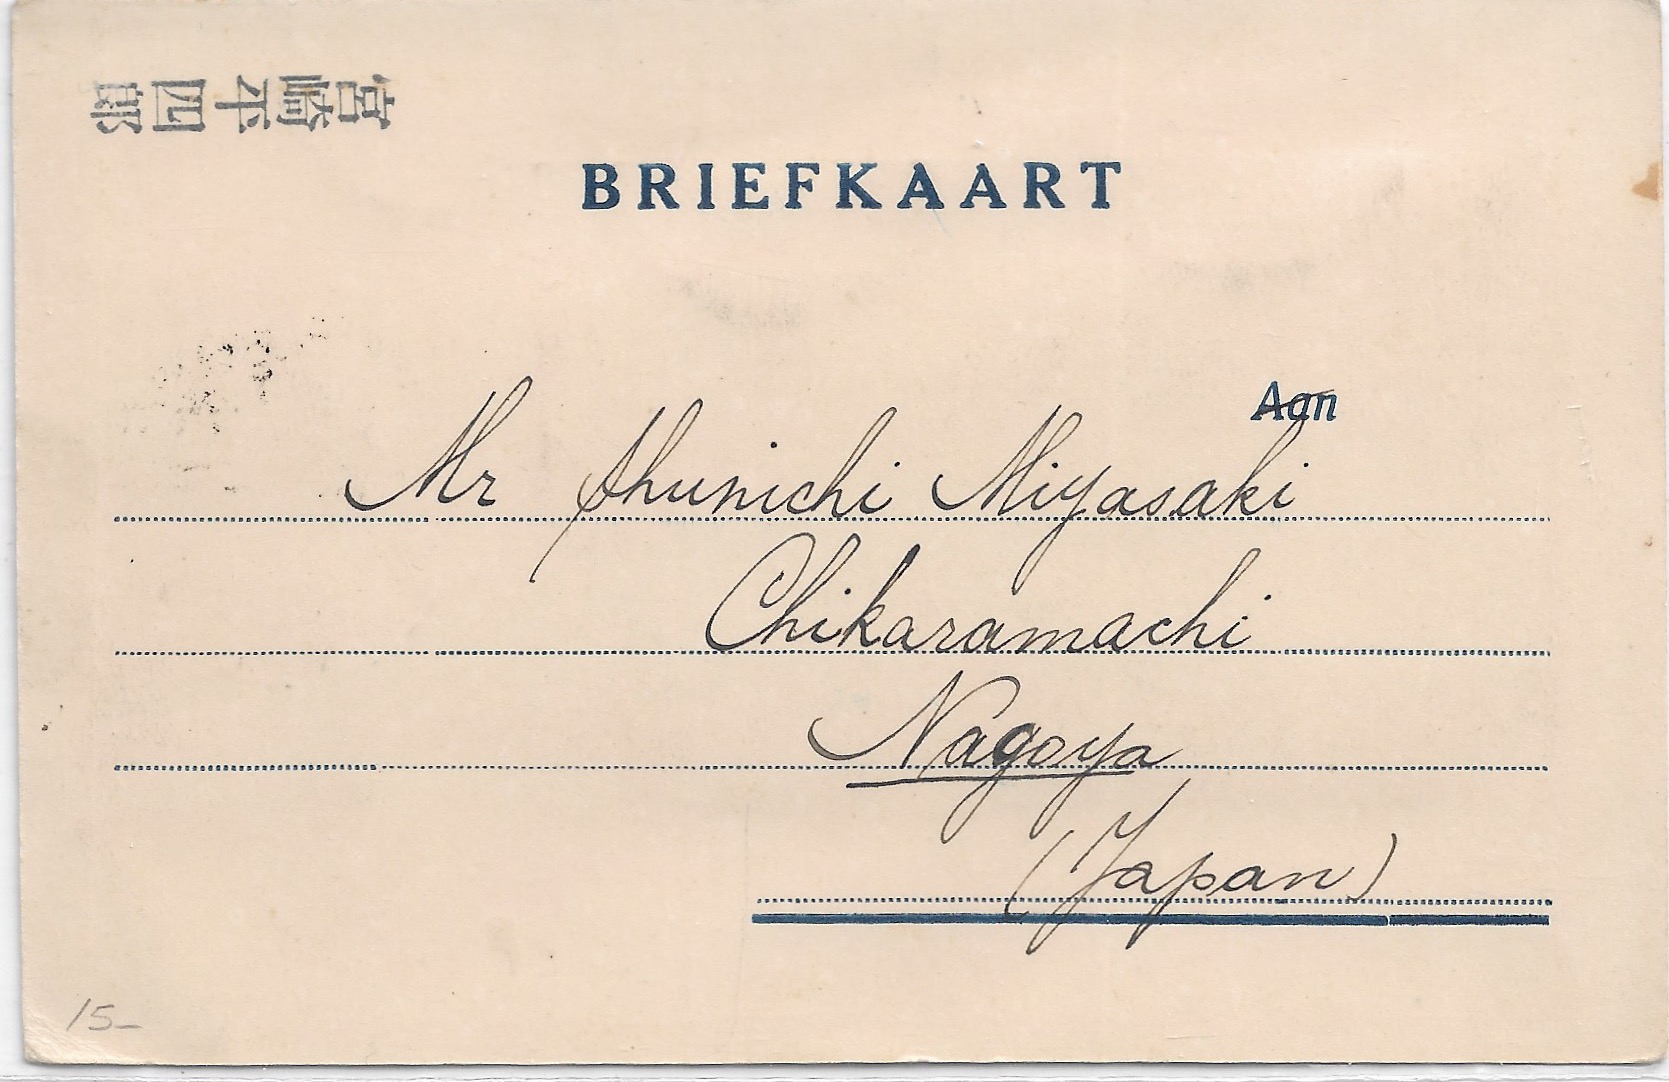 宮崎平四郎
BRIEFKAART
Aan
Mr Shunichi Miyasaki
Chikaramachi
Nagoya
(Japan)
15-